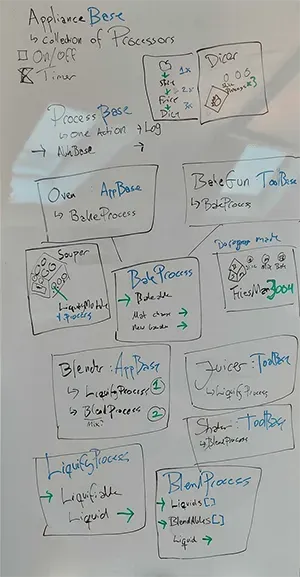 ApplianceBase
↳ Collection of Processors
□ On/Off
Timer
1x
→ 2x
Dice 3x
Dicer
x3
ProcessBase
↳ One Action → Log
→ →
Oven AppBase
↳ BakeProcess
BakeGun ToolBase
↳ BakeProcess
Souper
LiquifyModule
+ Process
BakeProcess
→ Bakable
Mat change →
→
FriesMan3004
Blender: AppBase
↳ LiquifyProcess ①
↳ BlendProcess ②
Juicer: ToolBase
↳ LiquifyProcess
Shaker: ToolBase
↳ BlendProcess
LiquifyProcess
→ Liquifiable
Liquid →
BlendProcess
→ Liquids[]
→ BlendAbles[]
Liquid →